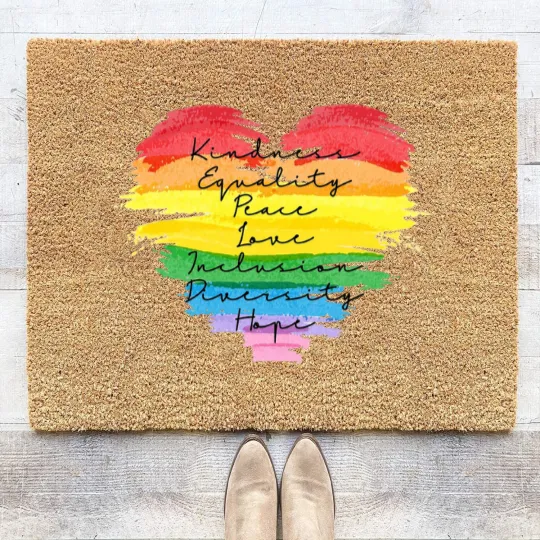 Kindness
Equality
Peace
Love
Inclusion
Diversity
Hope